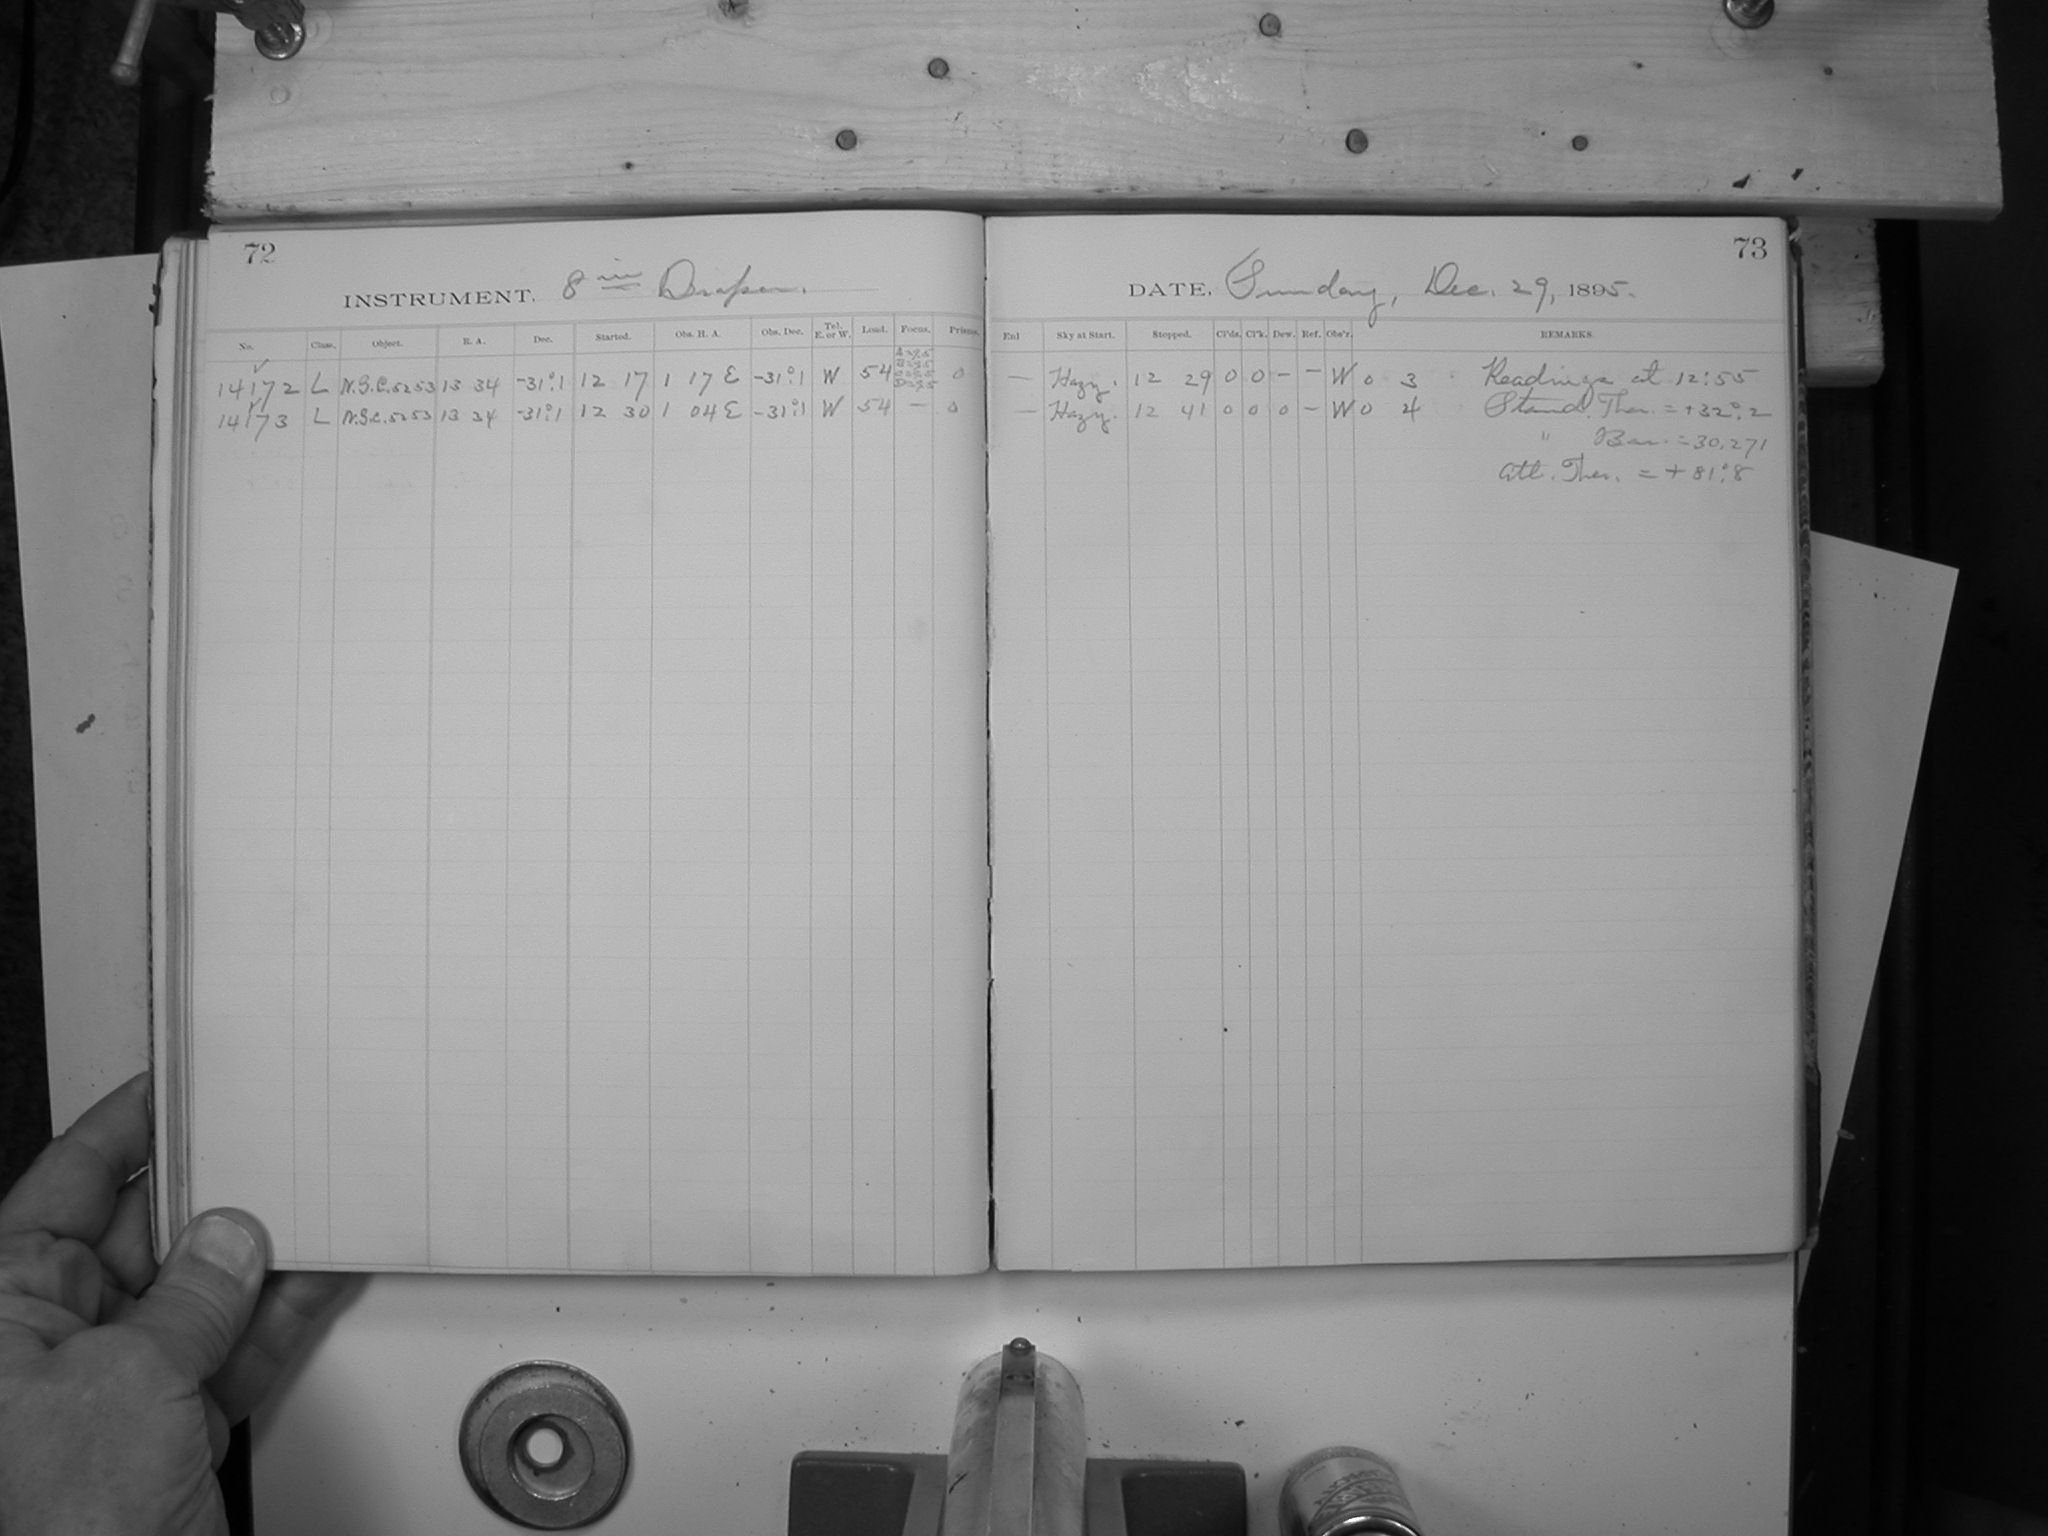 72
INSTRUMENT. 8 in Draper.
No. Class. Object. R. A. Dec. Started. Obs. H. A. Obs. Dec. Tel. E. or W. Load. Focus. Prisms.
14172 L N.G.C. 5253 13 34 -31°.1 12 17 1 17 E -31°.1 W 54 A=9.5 B=9.5 C=9.5 D=9.5 0
14173 L N.G.C. 5253 13 34 -31°.1 12 30 1 04 E -31°.1 W 54 — 0
73
DATE. Sunday, Dec. 29, 1895.
Enl Sky at Start. Stopped. Cl'ds. Cl'k. Dew. Ref. Obs'r. REMARKS.
— Hazy. 12 29 0 0 — — W 0 3 Readings at 12:55
— Hazy. 12 41 0 0 0 — W 0 4 Stand. Ther. = +32°.2
" Bar. = 30.271
Att. Ther. = + 81°.8